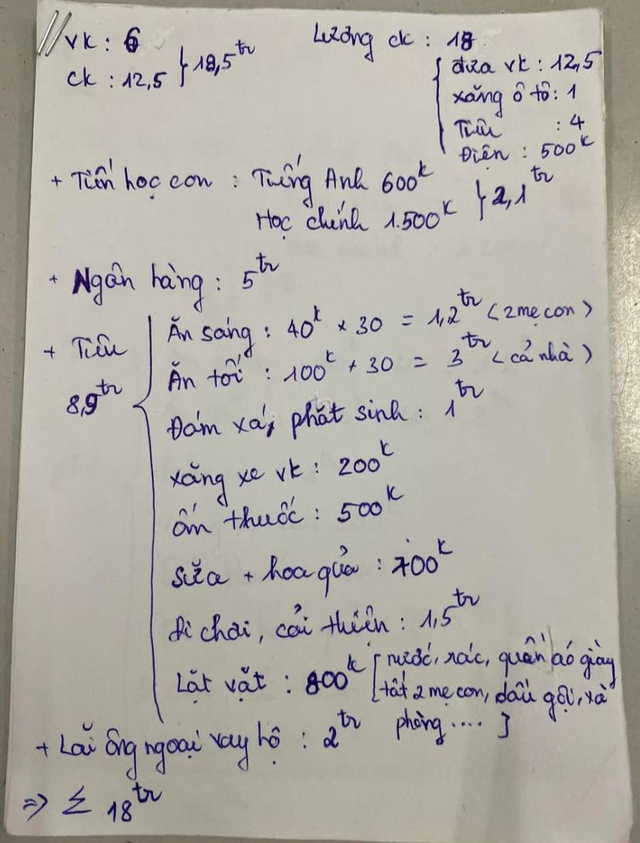 vk : 6
ck : 12,5
} 18,5 tr
Lương ck : 18
đưa vk : 12,5
xăng ô tô : 1
Tiêu : 4
Điện : 500k
+ Tiền học con : Tiếng Anh 600k
Học chính 1.500k
} 2,1 tr
+ Ngân hàng : 5 tr
+ Tiêu
8,9 tr
Ăn sáng : 40k × 30 = 1,2 tr (2 mẹ con)
Ăn tối : 100k × 30 = 3 tr (cả nhà)
Đám xá, phát sinh : 1 tr
xăng xe vk : 200k
ốm thuốc : 500k
Sữa + hoa quả : 700k
Đi chơi, cải thiện : 1,5 tr
Lặt vặt : 800k [nước, rác, quần áo giày
tất 2 mẹ con, dầu gội, xà
phòng .... ]
+ Lãi ông ngoại vay hộ : 2 tr
=> Σ 18 tr